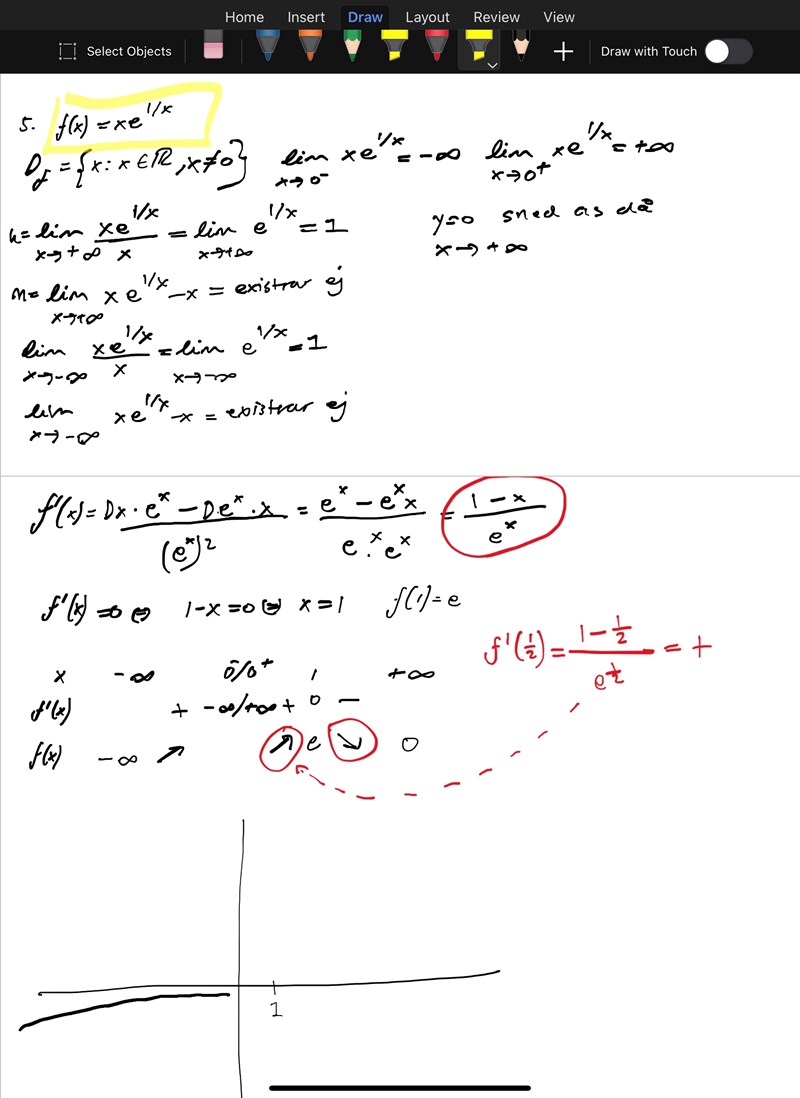 Home Insert Draw Layout Review View
Select Objects Draw with Touch
5. f(x) = xe^{1/x}
D_f = {x: x ∈ ℝ, x ≠ 0} lim_{x→0^-} xe^{1/x} = -∞ lim_{x→0^+} xe^{1/x} = +∞
k = lim_{x→+∞} xe^{1/x}/x = lim_{x→+∞} e^{1/x} = 1 y=0 sned as då
x→+∞
m = lim_{x→+∞} xe^{1/x} - x = existrar ej
lim_{x→-∞} xe^{1/x}/x = lim_{x→-∞} e^{1/x} = 1
lim_{x→-∞} xe^{1/x} - x = existrar ej
f'(x) = (Dx·e^x - De^x·x)/(e^x)^2 = (e^x - e^x x)/(e^x·e^x) = (1-x)/e^x
f'(x) = 0 ⇔ 1-x=0 ⇔ x=1 f(1)=e
f'(1/2) = (1 - 1/2)/e^{1/2} = +
x -∞ 0^-/0^+ 1 +∞
f'(x) + -∞/+∞ + 0 -
f(x) -∞ ↗ ↗ e ↘ 0
1